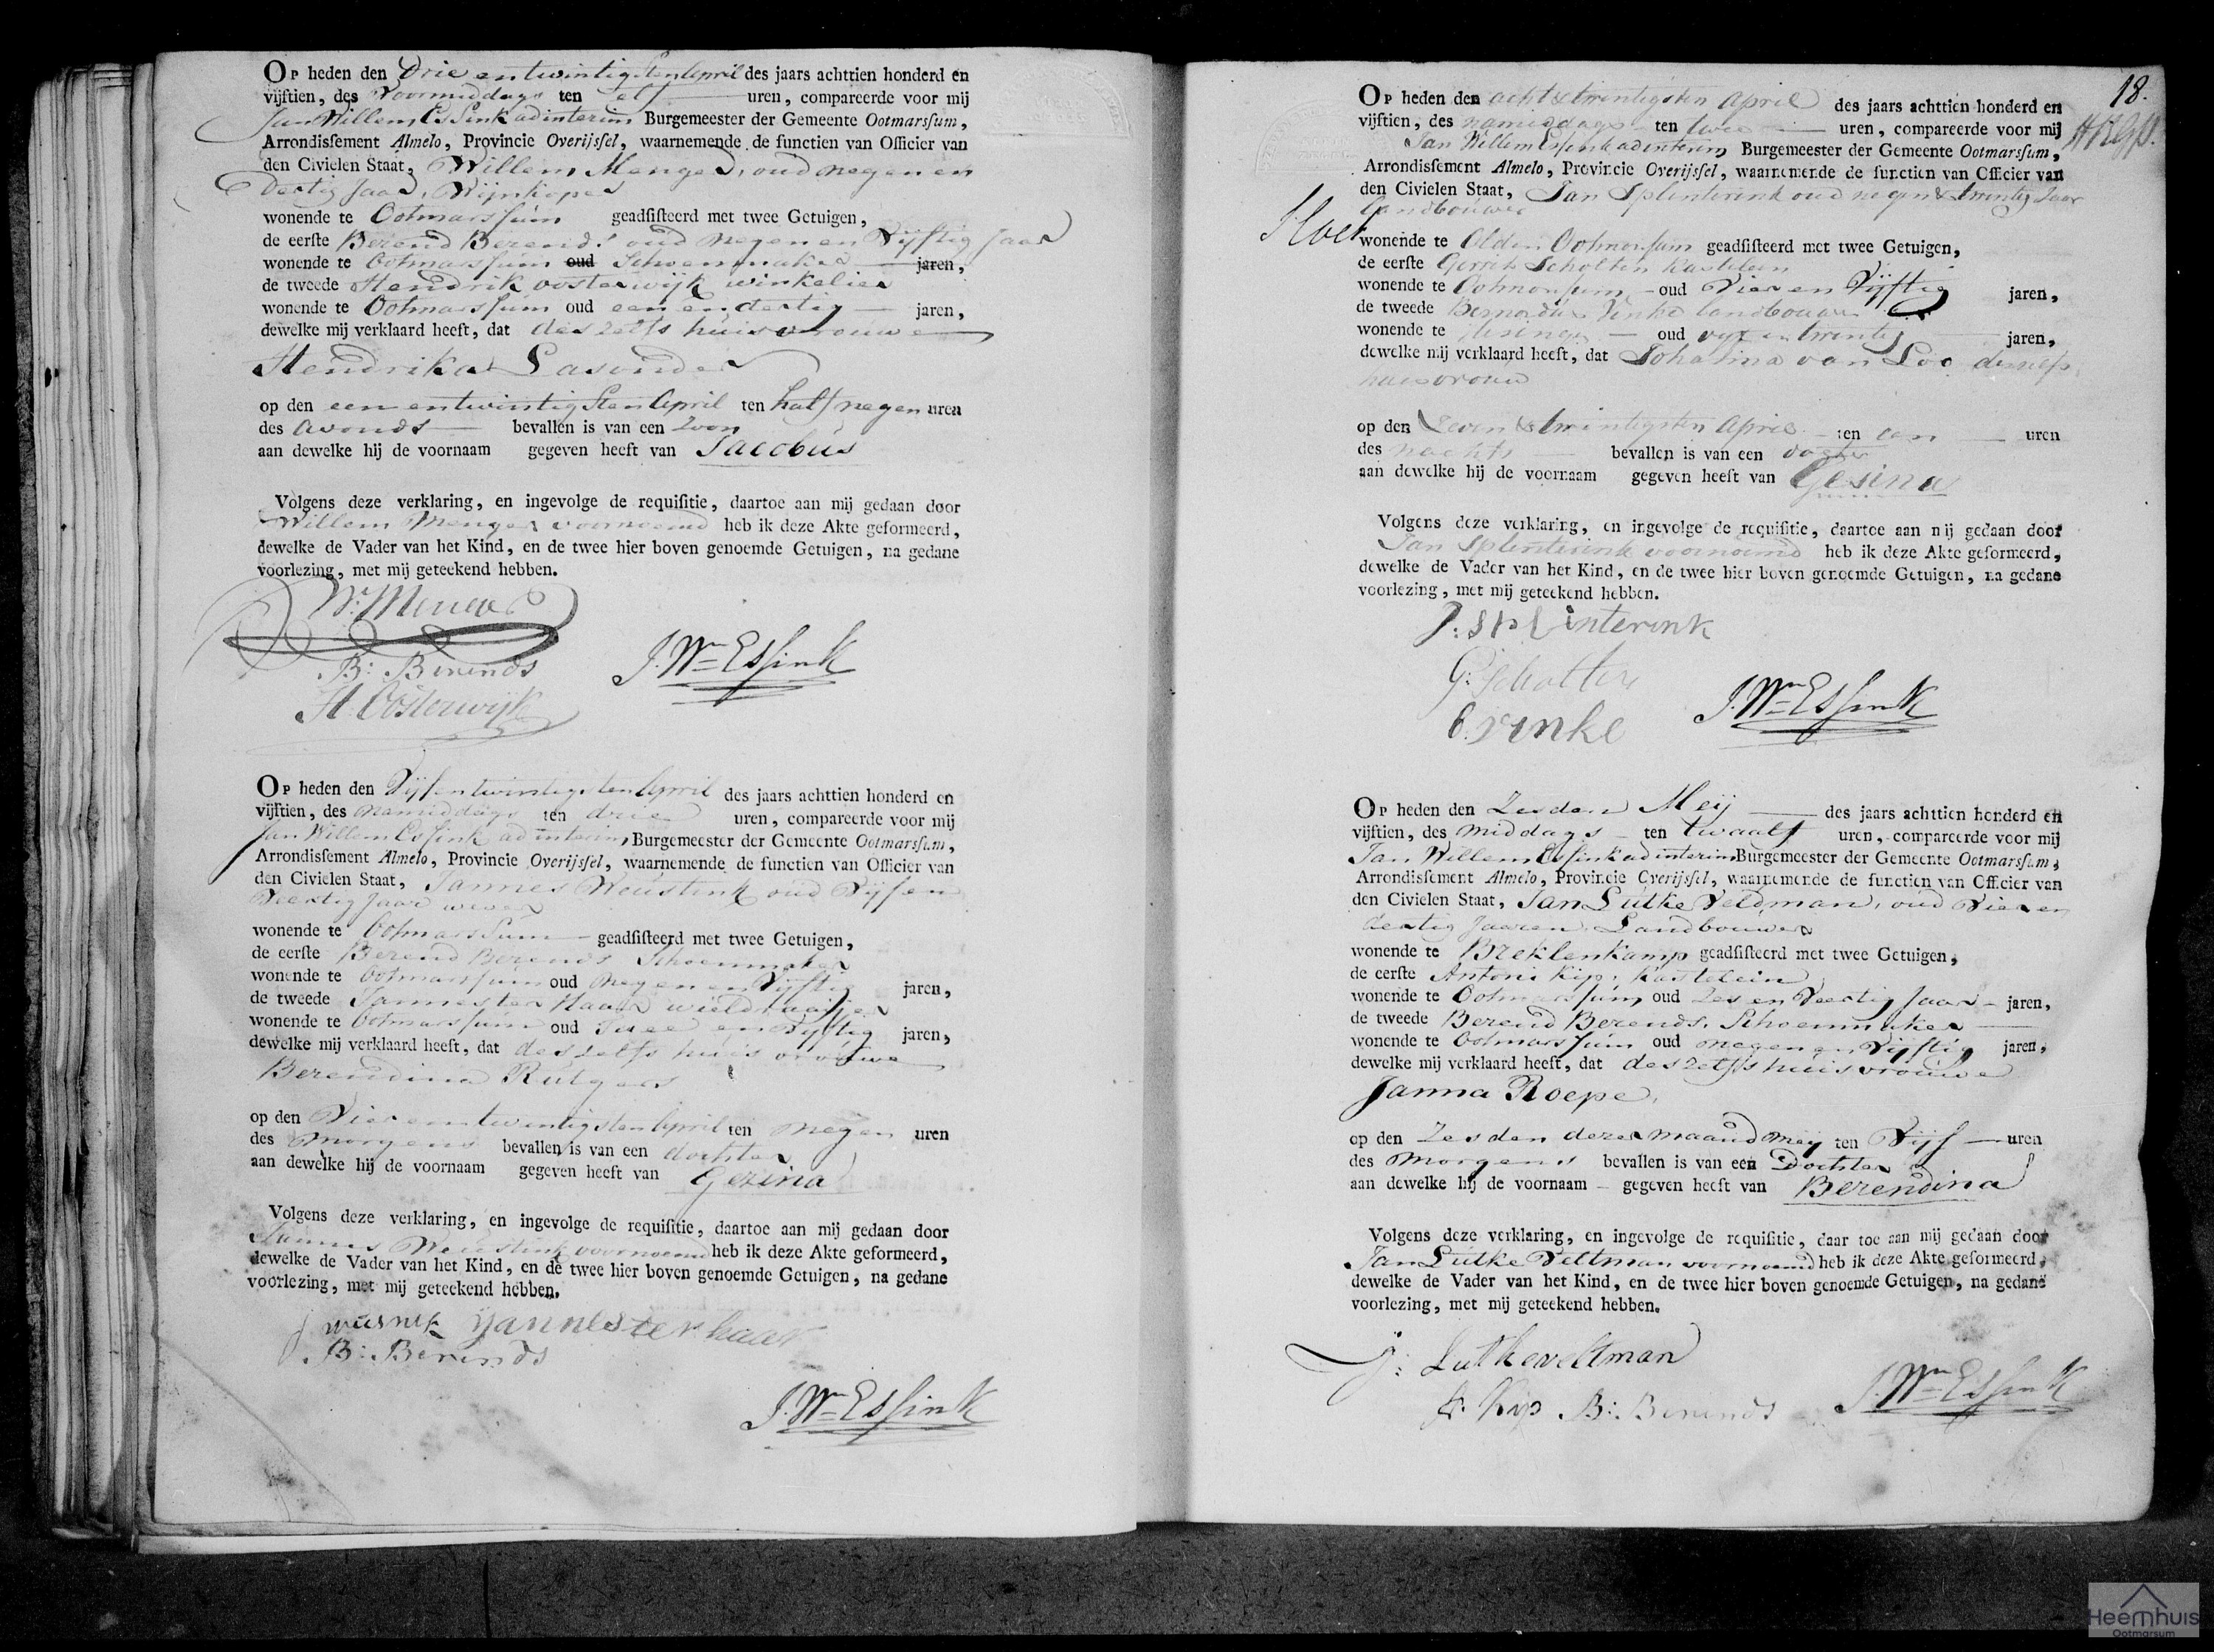 Op heden den Drie en twintigsten April des jaars achttien honderd en
vijftien, des Voormiddags ten elf uren, compareerde voor mij
Jan Willem Essink ad interim Burgemeester der Gemeente Ootmarssum,
Arrondissement Almelo, Provincie Overijssel, waarnemende de functien van Officier van
den Civielen Staat, Willem Menger, oud negen en
dertig Jaar, Wijnkoper
wonende te Ootmarssum geadsisteerd met twee Getuigen,
de eerste Berend Berends oud negen en Vijftig Jaar
wonende te Ootmarssum oud Schoenmaker jaren,
de tweede Hendrik oosterwijk winkelier
wonende te Ootmarssum oud een en dertig jaren,
dewelke mij verklaard heeft, dat deszelfs huisvrouwe
Hendrika Lasonder
op den een en twintigsten April ten half negen uren
des avonds bevallen is van een Zoon
aan dewelke hij de voornaam gegeven heeft van Jacobus
Volgens deze verklaring, en ingevolge de requisitie, daartoe aan mij gedaan door
Willem Menger voornoemd heb ik deze Akte geformeerd,
dewelke de Vader van het Kind, en de twee hier boven genoemde Getuigen, na gedane
voorlezing, met mij geteekend hebben.
Wm Menger
B: Berends
H. Oosterwijk
J. Wm Essink
Op heden den Vijf en twintigsten April des jaars achttien honderd en
vijftien, des namiddags ten drie uren, compareerde voor mij
Jan Willem Essink ad interim Burgemeester der Gemeente Ootmarssum,
Arrondissement Almelo, Provincie Overijssel, waarnemende de functien van Officier van
den Civielen Staat, Jannes Weustink oud Vijf en
Veertig Jaar wever
wonende te Ootmarssum geadsisteerd met twee Getuigen,
de eerste Berend Berends Schoenmaker
wonende te Ootmarssum oud negen en Vijftig jaren,
de tweede Jannes ter Haar wieldraaijer
wonende te Ootmarssum oud Twee en Vijftig jaren,
dewelke mij verklaard heeft, dat deszelfs huisvrouwe
Berendina Rutgers
op den Vier en twintigsten April ten negen uren
des morgens bevallen is van een dochter
aan dewelke hij de voornaam gegeven heeft van Gezina
Volgens deze verklaring, en ingevolge de requisitie, daartoe aan mij gedaan door
Jannes Weustink voornoemd heb ik deze Akte geformeerd,
dewelke de Vader van het Kind, en de twee hier boven genoemde Getuigen, na gedane
voorlezing, met mij geteekend hebben.
J wusnk Yannes ter haar
B: Berends
J. Wm Essink
18.
Op heden den acht & twintigsten April des jaars achttien honderd en
vijftien, des namiddags ten twee uren, compareerde voor mij
Jan Willem Essink ad interim Burgemeester der Gemeente Ootmarssum,
Arrondissement Almelo, Provincie Overijssel, waarnemende de functien van Officier van
den Civielen Staat, Jan Splenterink oud negen & twintig Jaar
Landbouwer
wonende te Olden Ootmarsum geadsisteerd met twee Getuigen,
de eerste Gerrit Scholten Kastelein
wonende te Ootmarsum oud Vier en Vijftig jaren,
de tweede Bernardus Vinke landbouwer
wonende te oud vyf en twintig jaren,
dewelke mij verklaard heeft, dat Johanna van Loo deszelfs
huisvrouw
op den Zeven & twintigsten April ten een uren
des nachts bevallen is van een dogter
aan dewelke hij de voornaam gegeven heeft van Gesina
Volgens deze verklaring, en ingevolge de requisitie, daartoe aan mij gedaan door
Jan Splenterink voornoemd heb ik deze Akte geformeerd,
dewelke de Vader van het Kind, en de twee hier boven genoemde Getuigen, na gedane
voorlezing, met mij geteekend hebben.
J: Splinterink
G: Scholten
B. vinke
J. Wm Essink
Op heden den Zesden Meij des jaars achttien honderd en
vijftien, des middags ten twaalf uren, compareerde voor mij
Jan Willem Essink ad interim Burgemeester der Gemeente Ootmarssum,
Arrondissement Almelo, Provincie Overijssel, waarnemende de functien van Officier van
den Civielen Staat, Jan Lutke Veldman, oud Vier en
dertig Jaaren, Landbouwer
wonende te Breklenkamp geadsisteerd met twee Getuigen,
de eerste Antoni Kip, Kastelein
wonende te Ootmarssum oud Zes en Veertig Jaar jaren,
de tweede Berend Berends, Schoenmaker
wonende te Ootmarssum oud negen en Vijftig jaren,
dewelke mij verklaard heeft, dat deszelfs huisvrouwe
Janna Roepe,
op den Zesden dezer maand Meij ten Vijf uren
des Morgens bevallen is van een Dochter
aan dewelke hij de voornaam gegeven heeft van Berendina
Volgens deze verklaring, en ingevolge de requisitie, daar toe aan mij gedaan door
Jan Lutke Veltman voornoemd heb ik deze Akte geformeerd,
dewelke de Vader van het Kind, en de twee hier boven genoemde Getuigen, na gedane
voorlezing, met mij geteekend hebben.
J: Lutkeveltman
A. Kip B: Berends
J. Wm Essink
Heemhuis
Ootmarsum